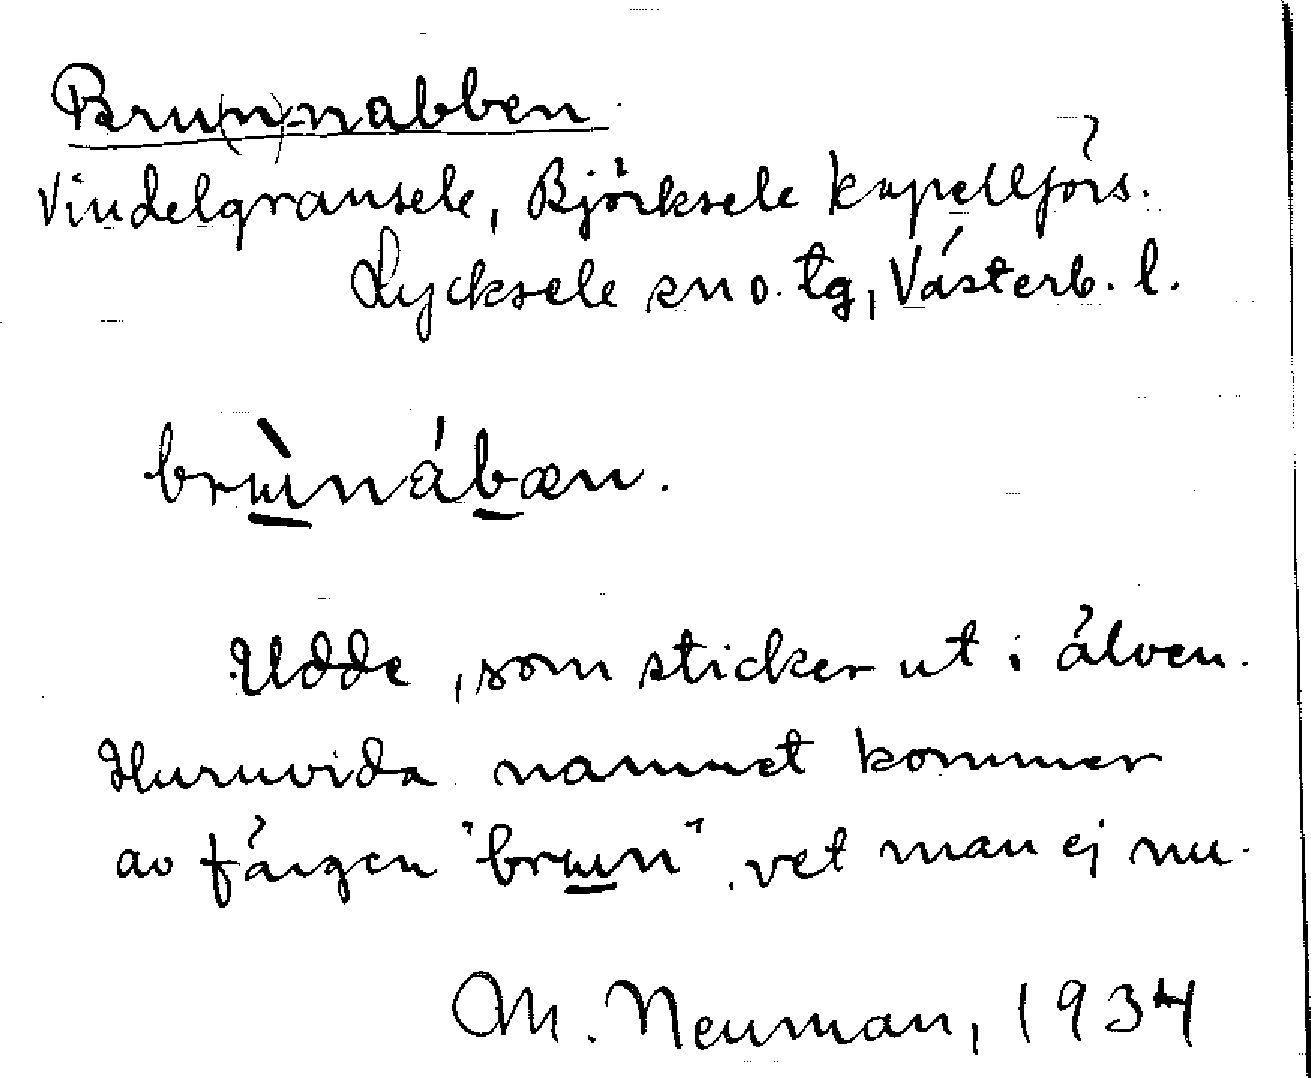 Brun(n)-nabben
Vindelgransele, Björksele kapellförs.
Lycksele sn o. tg, Västerb. l.
brɯ̀nábæn.
Udde, som sticker ut i älven.
Huruvida namnet kommer
av färgen "brɯn", vet man ej nu.
M. Neuman, 1934